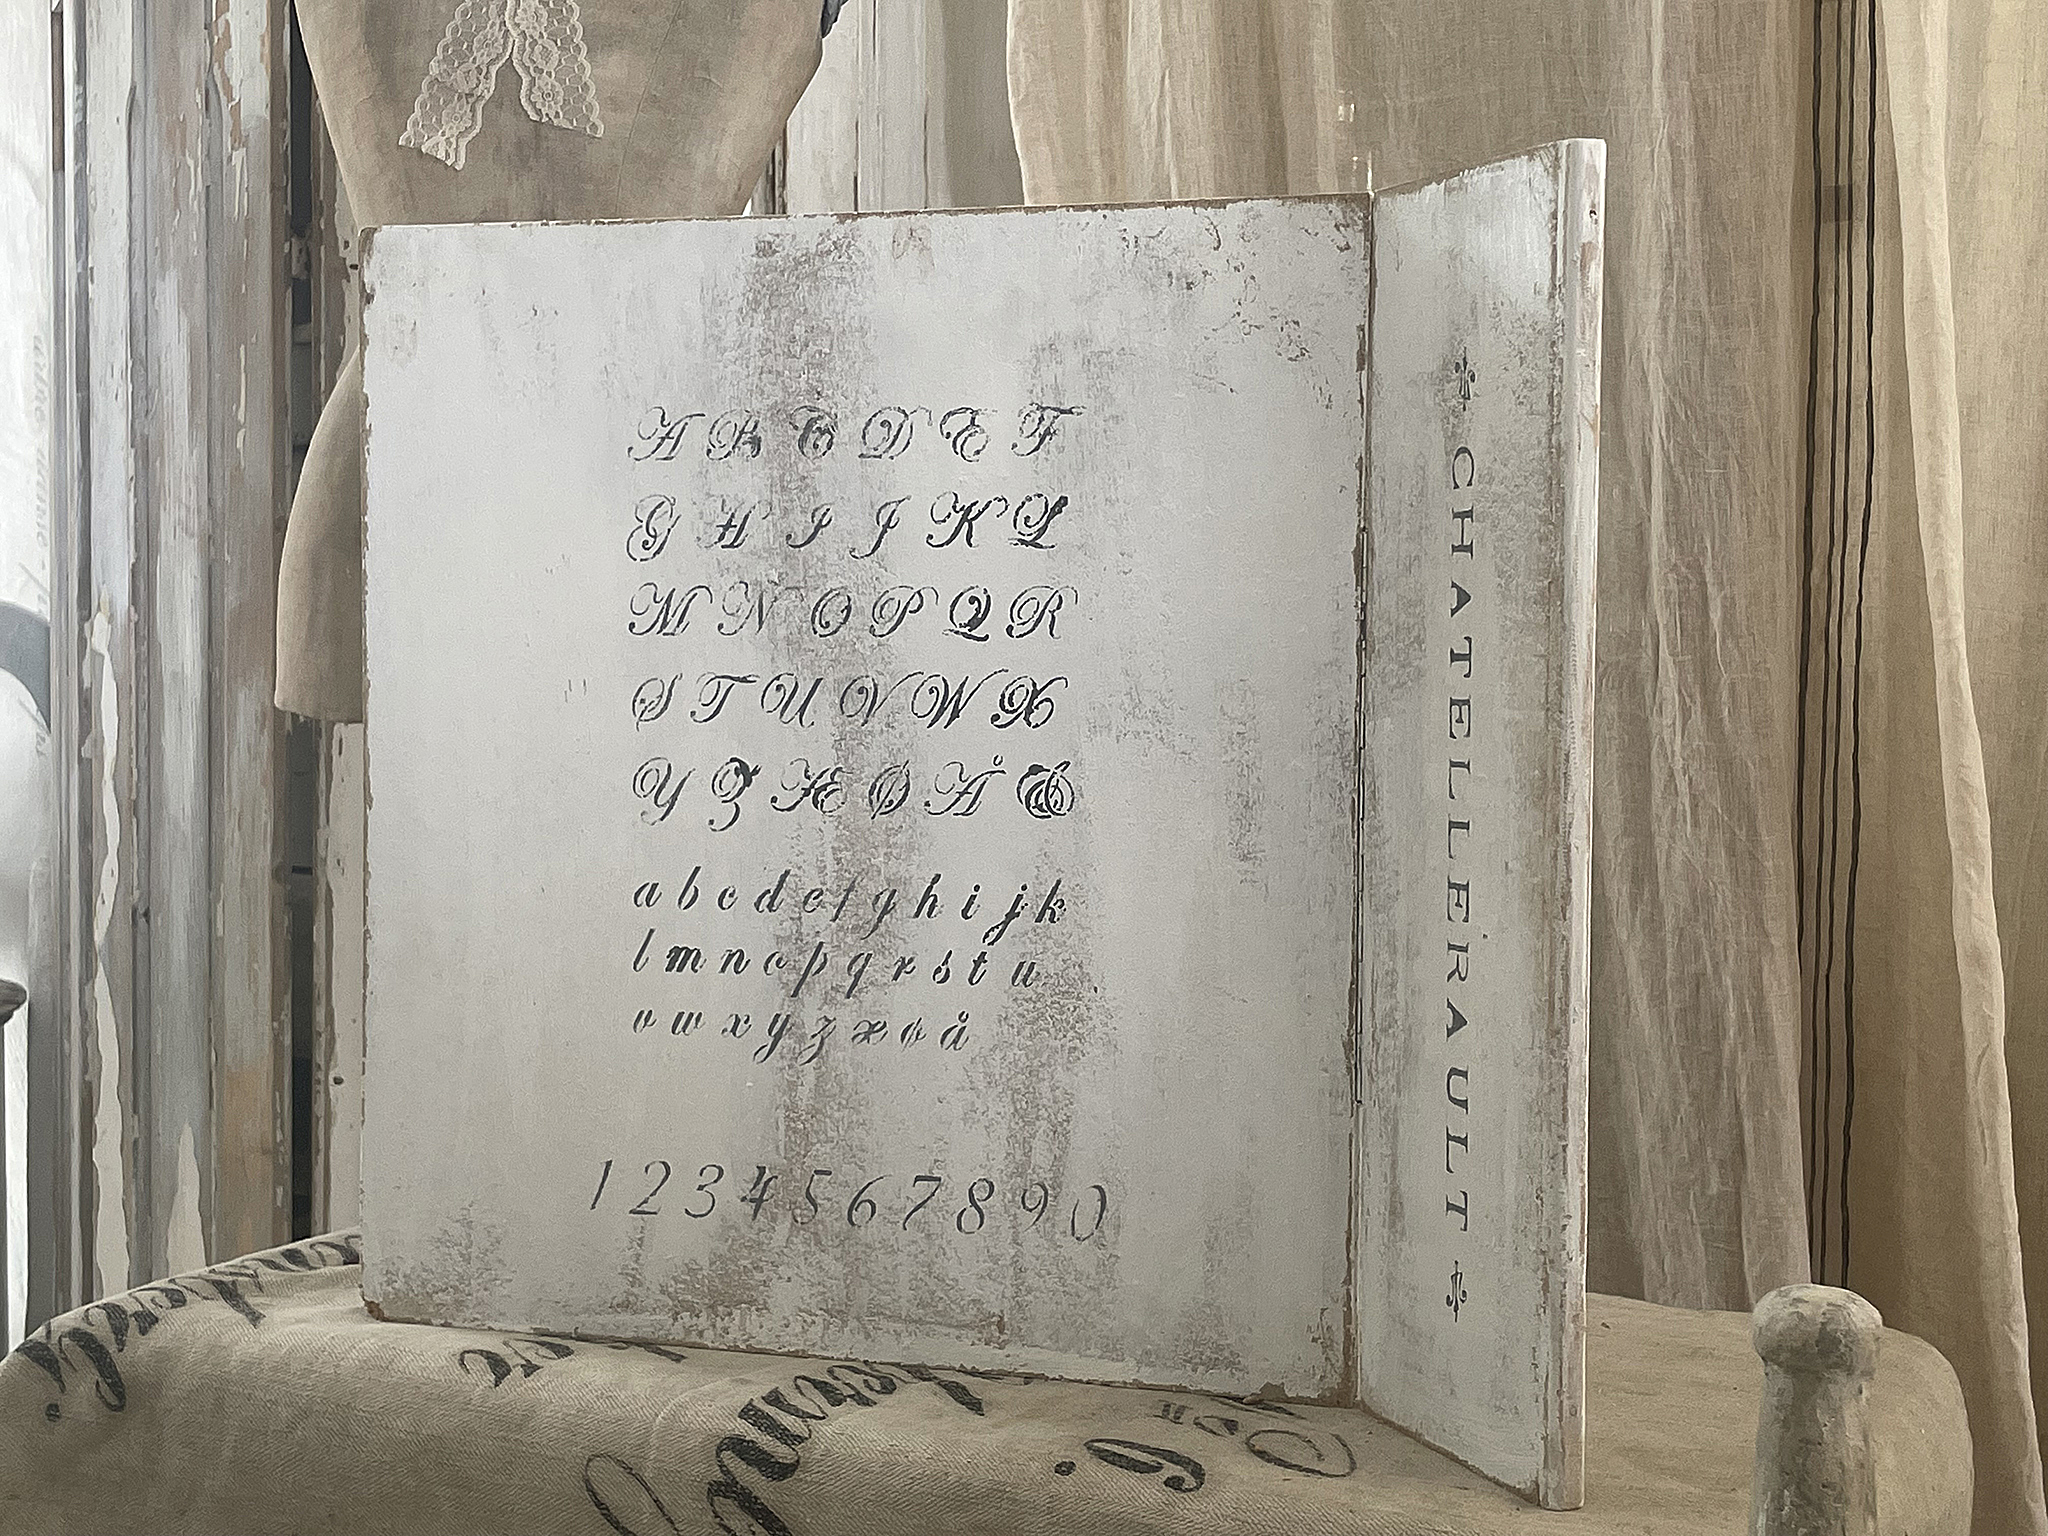 A B C D E F
G H I J K L
M N O P Q R
S T U V W X
Y Z Æ Ø Å &
a b c d e f g h i j k
l m n o p q r s t u
v w x y z æ ø å
1 2 3 4 5 6 7 8 9 0
CHATELLERAULT